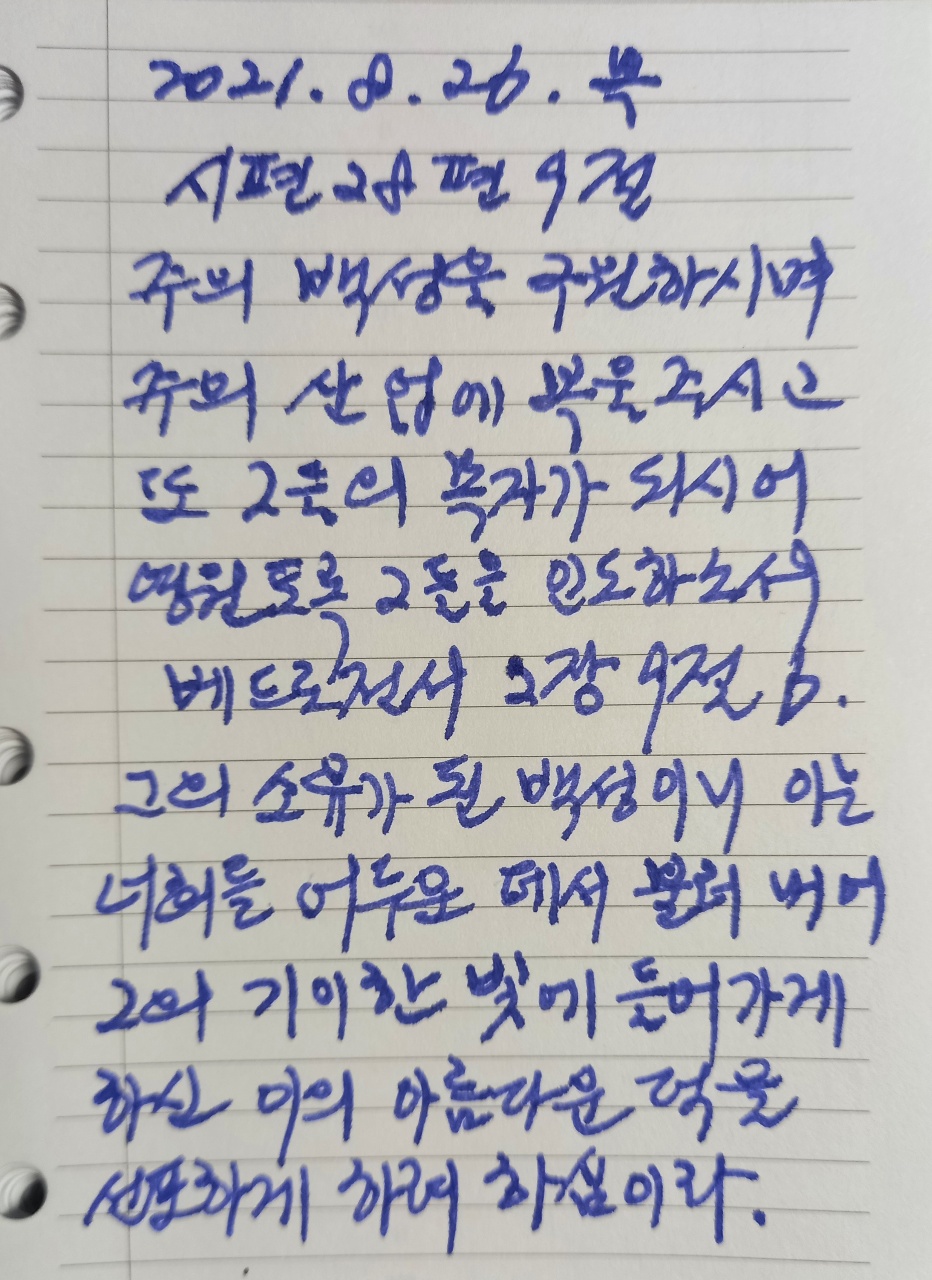 2021. 8. 26. 목
시편 28편 9절
주의 백성을 구원하시며
주의 산업에 복을 주시고
또 그들의 목자가 되시어
영원토록 그들을 인도하소서
베드로전서 2장 9절 b.
그의 소유가 된 백성이니 이는
너희를 어두운 데서 불러 내어
그의 기이한 빛에 들어가게
하신 이의 아름다운 덕을
선포하게 하려 하심이라.